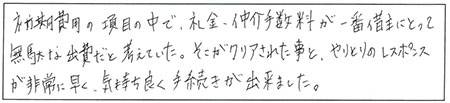 初期費用の項目の中で、礼金・仲介手数料が一番借主にとって
無駄な出費だと考えていた。そこがクリアされた事と、やりとりのレスポンス
が非常に早く、気持ち良く手続きが出来ました。